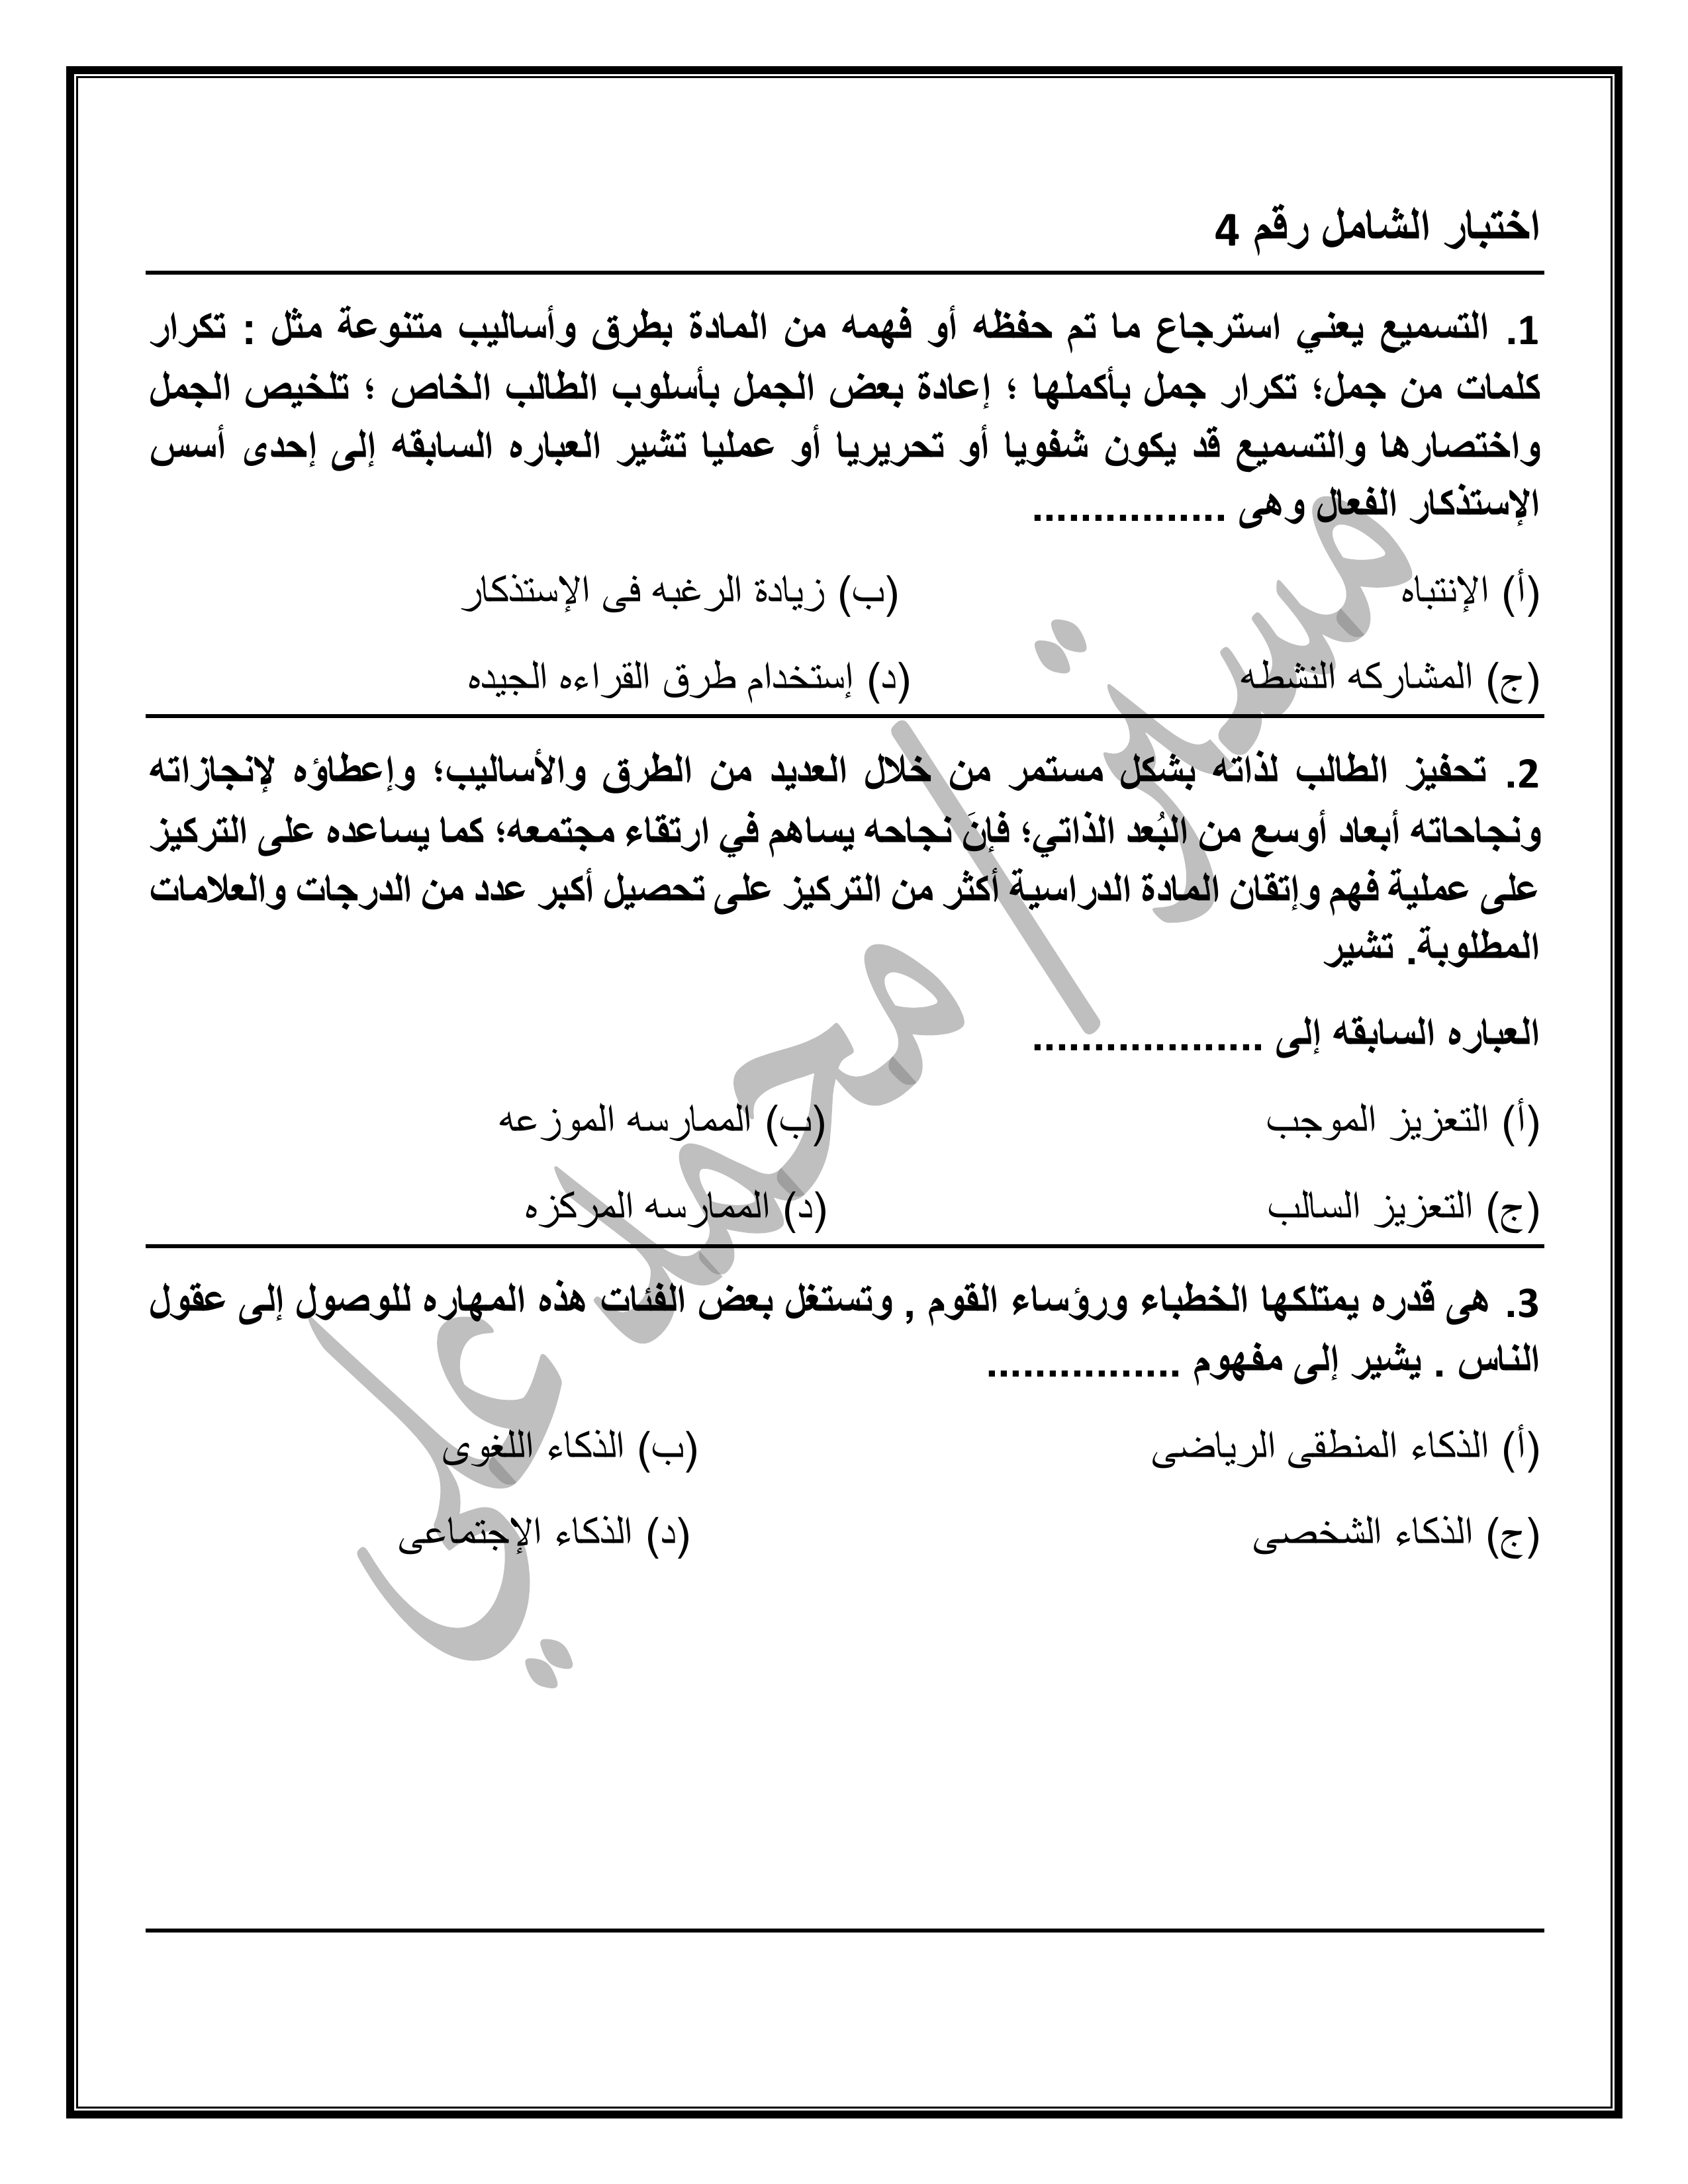 اختبار الشامل رقم 4
1. التسميع يعني استرجاع ما تم حفظه أو فهمه من المادة بطرق وأساليب متنوعة مثل : تكرار
كلمات من جمل؛ تكرار جمل بأكملها ؛ إعادة بعض الجمل بأسلوب الطالب الخاص ؛ تلخيص الجمل
واختصارها والتسميع قد يكون شفويا أو تحريريا أو عمليا تشير العباره السابقه إلى إحدى أسس
الإستذكار الفعال وهى ................
(أ) الإنتباه (ب) زيادة الرغبه فى الإستذكار
(ج) المشاركه النشطه (د) إستخدام طرق القراءه الجيده
2. تحفيز الطالب لذاته بشكل مستمر من خلال العديد من الطرق والأساليب؛ وإعطاؤه لإنجازاته
ونجاحاته أبعاد أوسع من البُعد الذاتي؛ فإنَ نجاحه يساهم في ارتقاء مجتمعه؛ كما يساعده على التركيز
على عملية فهم وإتقان المادة الدراسية أكثر من التركيز على تحصيل أكبر عدد من الدرجات والعلامات
المطلوبة. تشير
العباره السابقه إلى ...................
(أ) التعزيز الموجب (ب) الممارسه الموزعه
(ج) التعزيز السالب (د) الممارسه المركزه
3. هى قدره يمتلكها الخطباء ورؤساء القوم , وتستغل بعض الفئات هذه المهاره للوصول إلى عقول
الناس . يشير إلى مفهوم ................
(أ) الذكاء المنطقى الرياضى (ب) الذكاء اللغوى
(ج) الذكاء الشخصى (د) الذكاء الإجتماعى
مستر/محمد علي